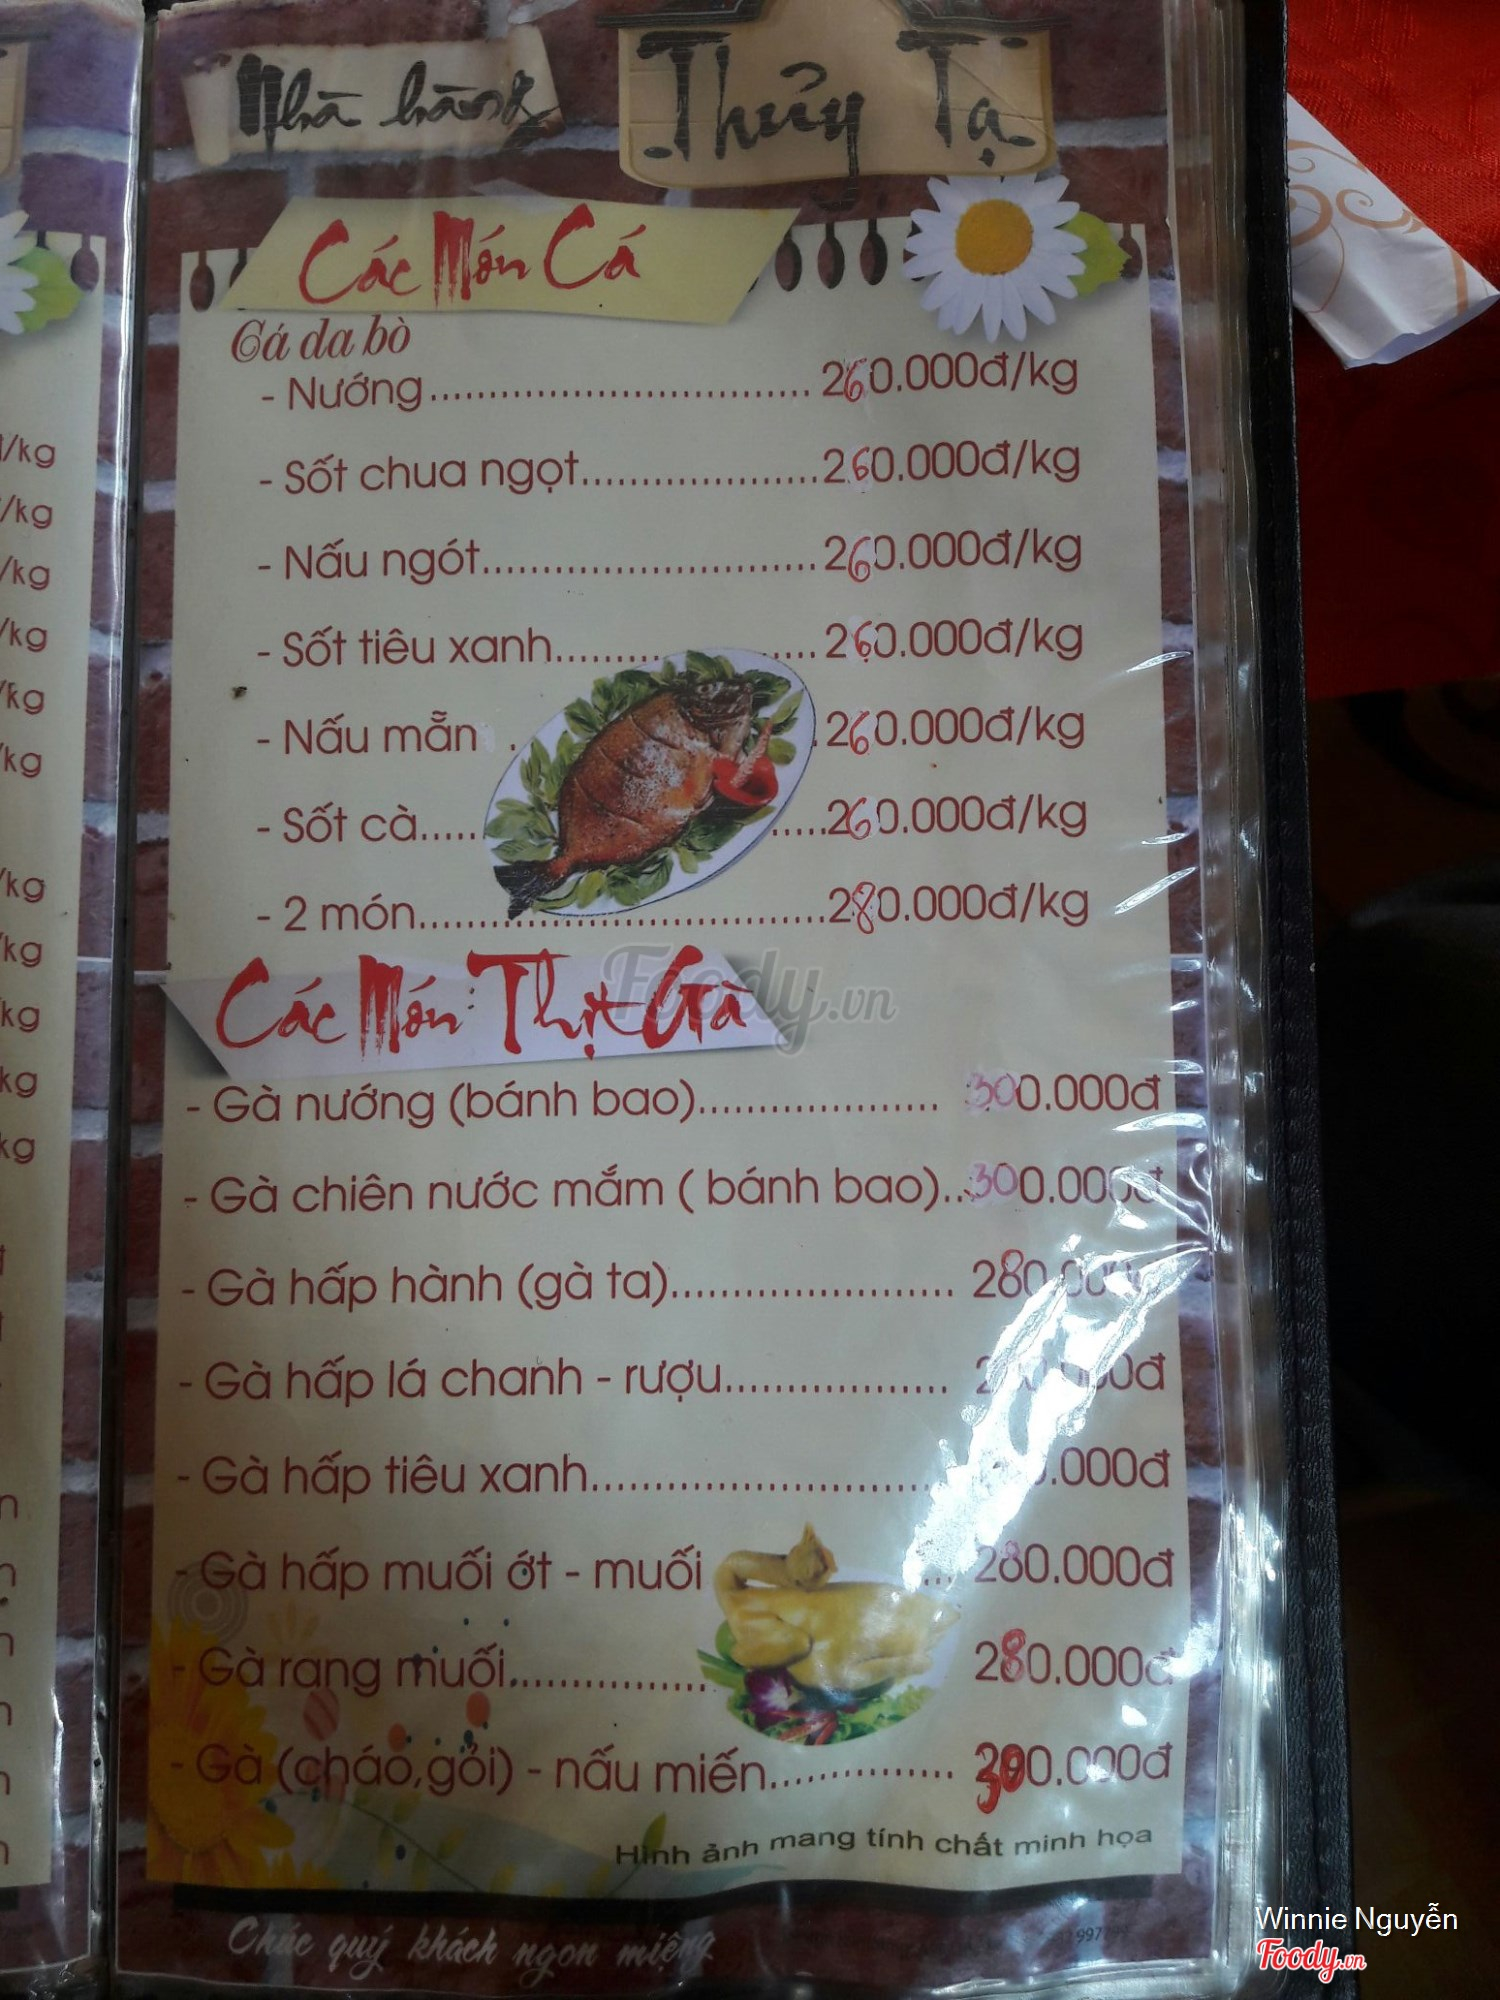 Nhà hàng Thủy Tạ
Các Món Cá
Cá da bò
- Nướng 260.000đ/kg
- Sốt chua ngọt 260.000đ/kg
- Nấu ngót 260.000đ/kg
- Sốt tiêu xanh 260.000đ/kg
- Nấu mẵn 260.000đ/kg
- Sốt cà 260.000đ/kg
- 2 món 280.000đ/kg
Các Món Thịt Gà
- Gà nướng (bánh bao) 300.000đ
- Gà chiên nước mắm ( bánh bao) 300.000đ
- Gà hấp hành (gà ta)
- Gà hấp lá chanh - rượu
- Gà hấp tiêu xanh
- Gà hấp muối ớt - muối 280.000đ
- Gà rang muối 280.000đ
- Gà (cháo,gỏi) - nấu miến
Hình ảnh mang tính chất minh họa
Chúc quý khách ngon miệng
Foody.vn
Winnie Nguyễn
Foody.vn
/kg
/kg
/kg
/kg
/kg
/kg
/kg
/kg
kg
kg
kg